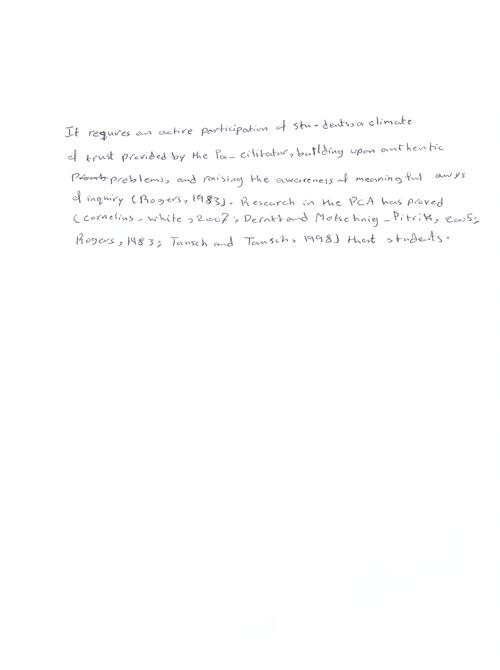 It requires an active participation of stu-dents, a climate
of trust provided by the Fa-cilitator, building upon authentic
problems, and raising the awareness of meaningful aways
of inquiry (Rogers, 1983). Research in the PCA has proved
(Cornelius-white, 2007, Derntl and Motschnig-Pitrik, 2005;
Rogers, 1983; Tausch and Tausch, 1998) that students.